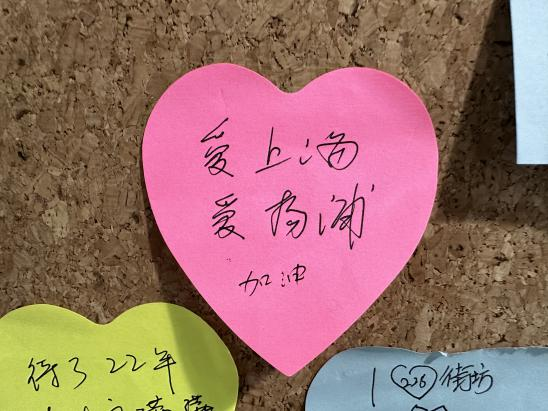 爱上海
爱杨浦
加油
待了22年
I 226 街坊